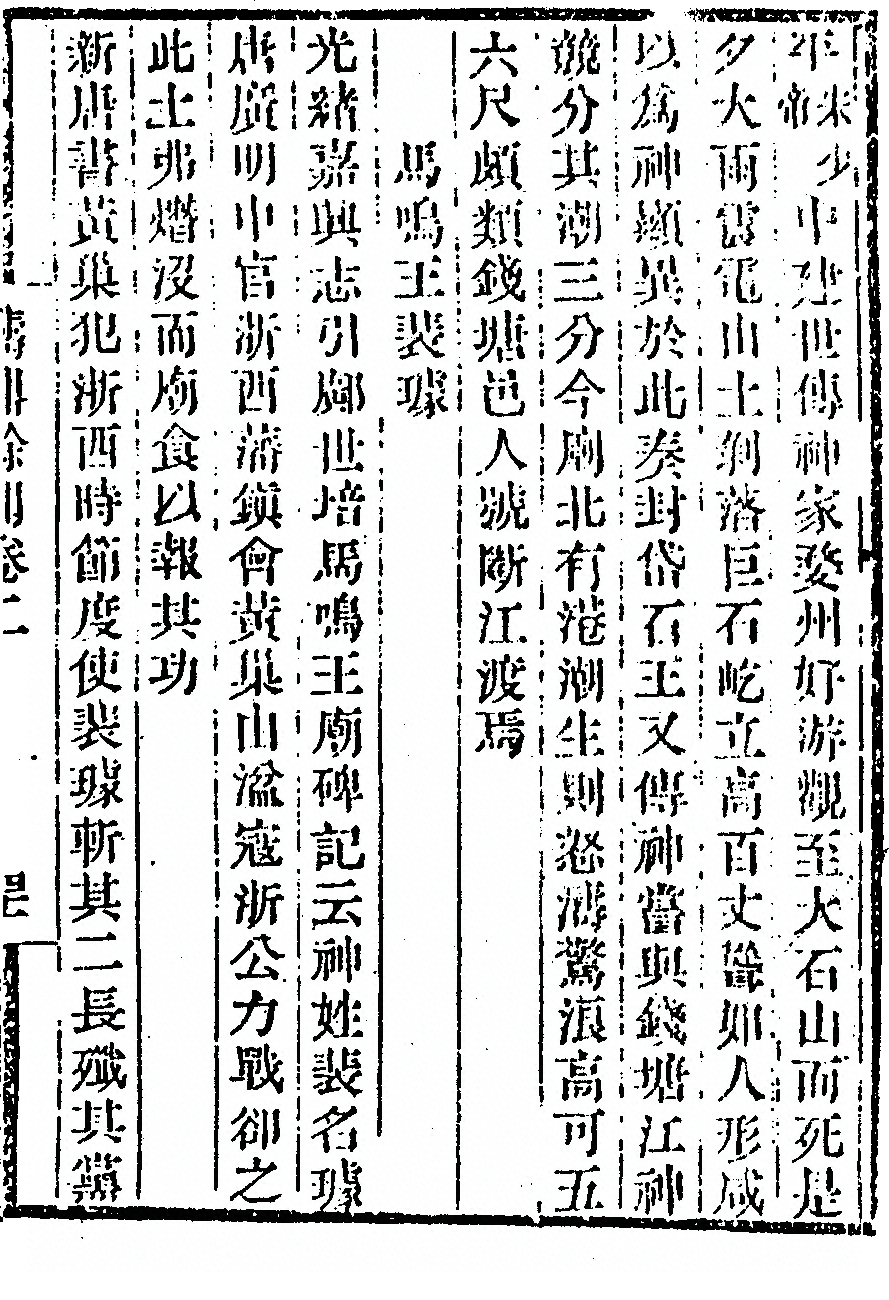 中建世傳神家婺州好游觀至大石山而死是
夕大雨雷電山土剝落巨石屹立高百丈聳如人形咸
以為神顯異於此奏封岱石王又傳神嘗與錢塘江神
競分其潮三分今廟北有港潮生則怒濤驚浪高可五
六尺頗類錢塘邑人號斷江渡焉
馬鳴王裴璩
光緒嘉興志引世培馬鳴王廟碑記云神姓裴名璩
唐廣明中官浙西藩鎮會黃巢由湓寇浙公力戰卻之
此土弗熸沒而廟食以報其功
新唐書黃巢犯浙西時節度使裴璩斬其二長殲其黨
卷二